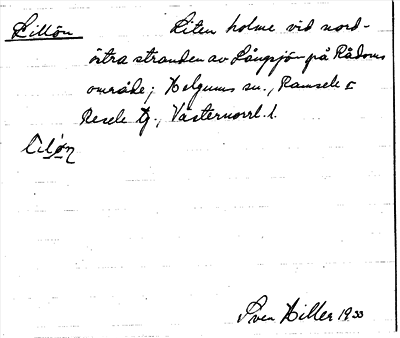 Lillön Liten holme vid nord-
östra stranden av Långsjön på Rådoms
område; Helgums sn., Ramsele o
Resele tg., Västernorrl. l.
Lilǿn
Sven Hiller 1933